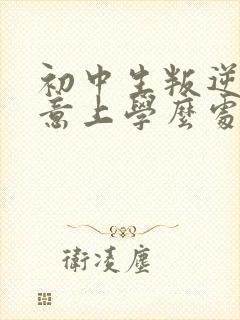 初中生叛逆
意上學麼處
衛凌塵